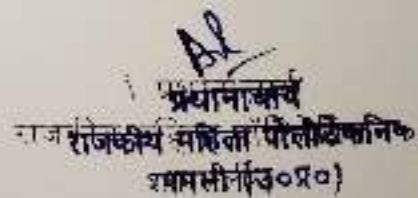 प्रधानाचार्य
राजकीय महिला पोलीटेकनिक
श्यामली (उ०प्र०)